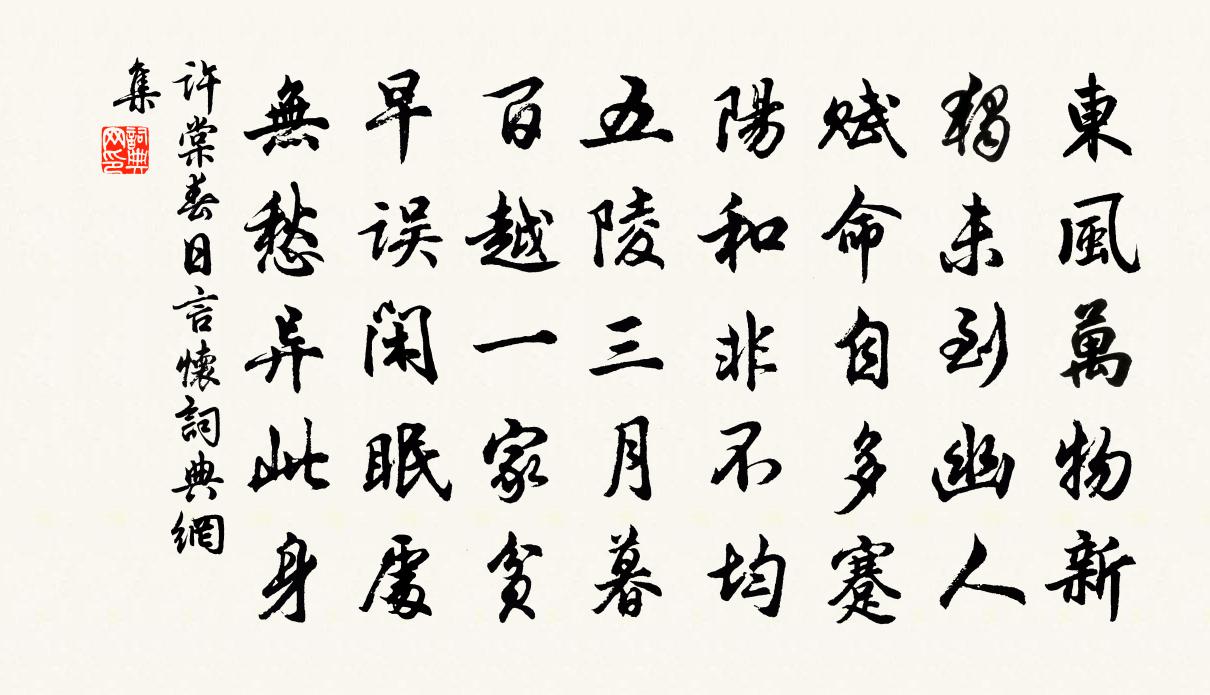 東風萬物新
獨未到幽人
賦命自多蹇
陽和非不均
五陵三月暮
百越一家貧
早誤閑眠處
無愁异此身
許棠春日言懷詞典網
集
詞典
网印